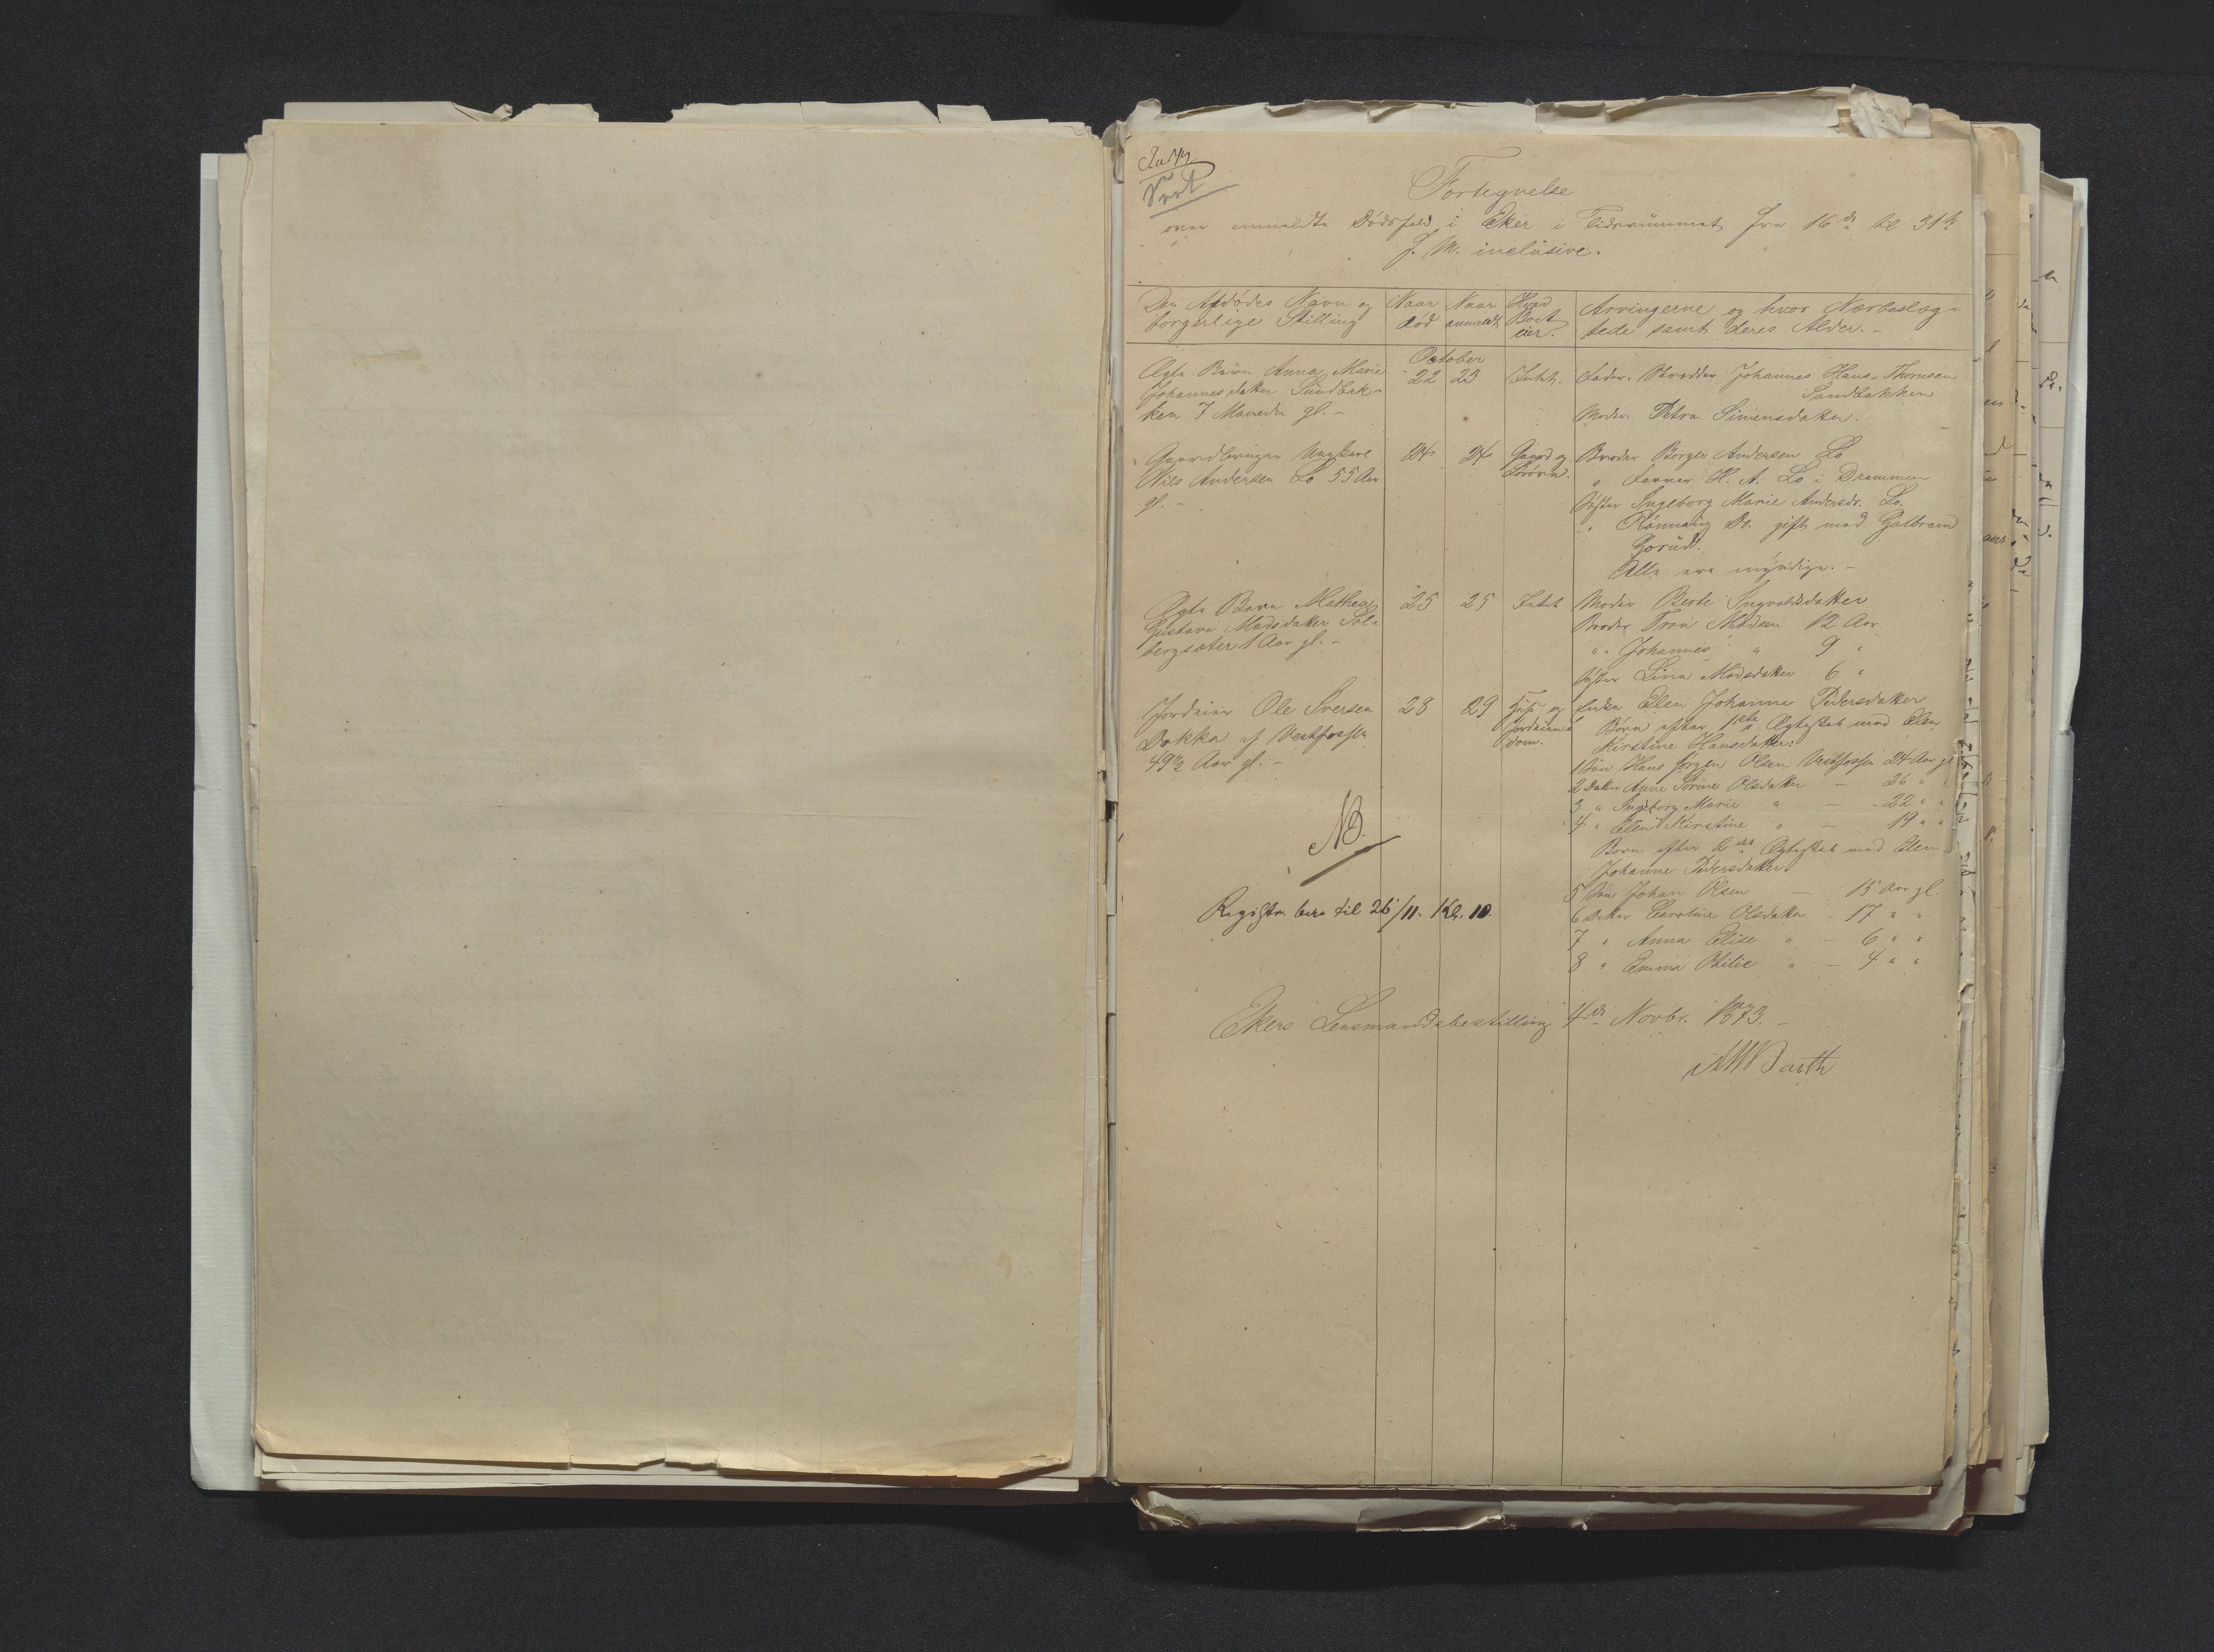 Fortegnelse
over anmeldte Dødsfald i Eker i Tidsrummet fra 16de til 31te
f. M. inclusive.
Den Afdødes Navn og borgerlige Stilling
Naar død
Naar anmeldt
Hvad Boet eier.
Arvingerne og hvor Nærbeslæg-
tede samt deres Alder.-
October
Ægte Barn Anna Marie 22 23 Intet. Fader: Johannes Hans. Thornsen
Johannesdatter Sundbak- Sandbakken
ken 7 Maneder gl. - Moder: Petra Simensdatter.
Gaardbruger Ungkarl 24 24 Gaard og Broder Borger Andersen Lo
Nils Andersen Lo 55 Aar Løsøre. " H. A. Lo i Drammen
gl. - Søster Ingeborg Marie Andersdr. Lo.
" Rønnaug Do. gift med Gulbrand
Gorud.
Alle ere myndige. -
Ægte Barn Mathea 25 25 Intet Moder Berte Ingvaldsdatter
Gustava Madsdatter Sol- Broder Tron Madsen 12 Aar
bergsæter 1 Aar gl. - " Johannes " 9 "
Søster Lina Madsdatter 6 "
Jordeier Ole Iversen 28 29 Huse og Enken Elen Johanne Pedersdatter
Dokka af Vestfossen Jordeien- Børn efter 1ste Ægteskab med Elen
49½ Aar gl. - dom. Kirstine Hansdatter:
1 Søn Hans Jørgen Olsen Vestfossen 24 Aar gl
2 Datter Anne Sorine Olsdatter - 26 " "
3 " Ingeborg Marie " - 22 " "
4 " Elen Kirstine " - 19 " "
NB.
Børn efter 2det Ægteskab med Elen
Johanne Pedersdatter.
5 Søn Johan Olsen - 15 Aar gl.
Registr. ber. til 26/11. Kl. 10.
6 Datter Caroline Olsdatter - 17 " "
7 " Anna Elise " - 6 " "
8 " Emma Otilie " - 4 " "
Ekers Lensmandsbestilling 4de Novbr. 1873. -
Barth